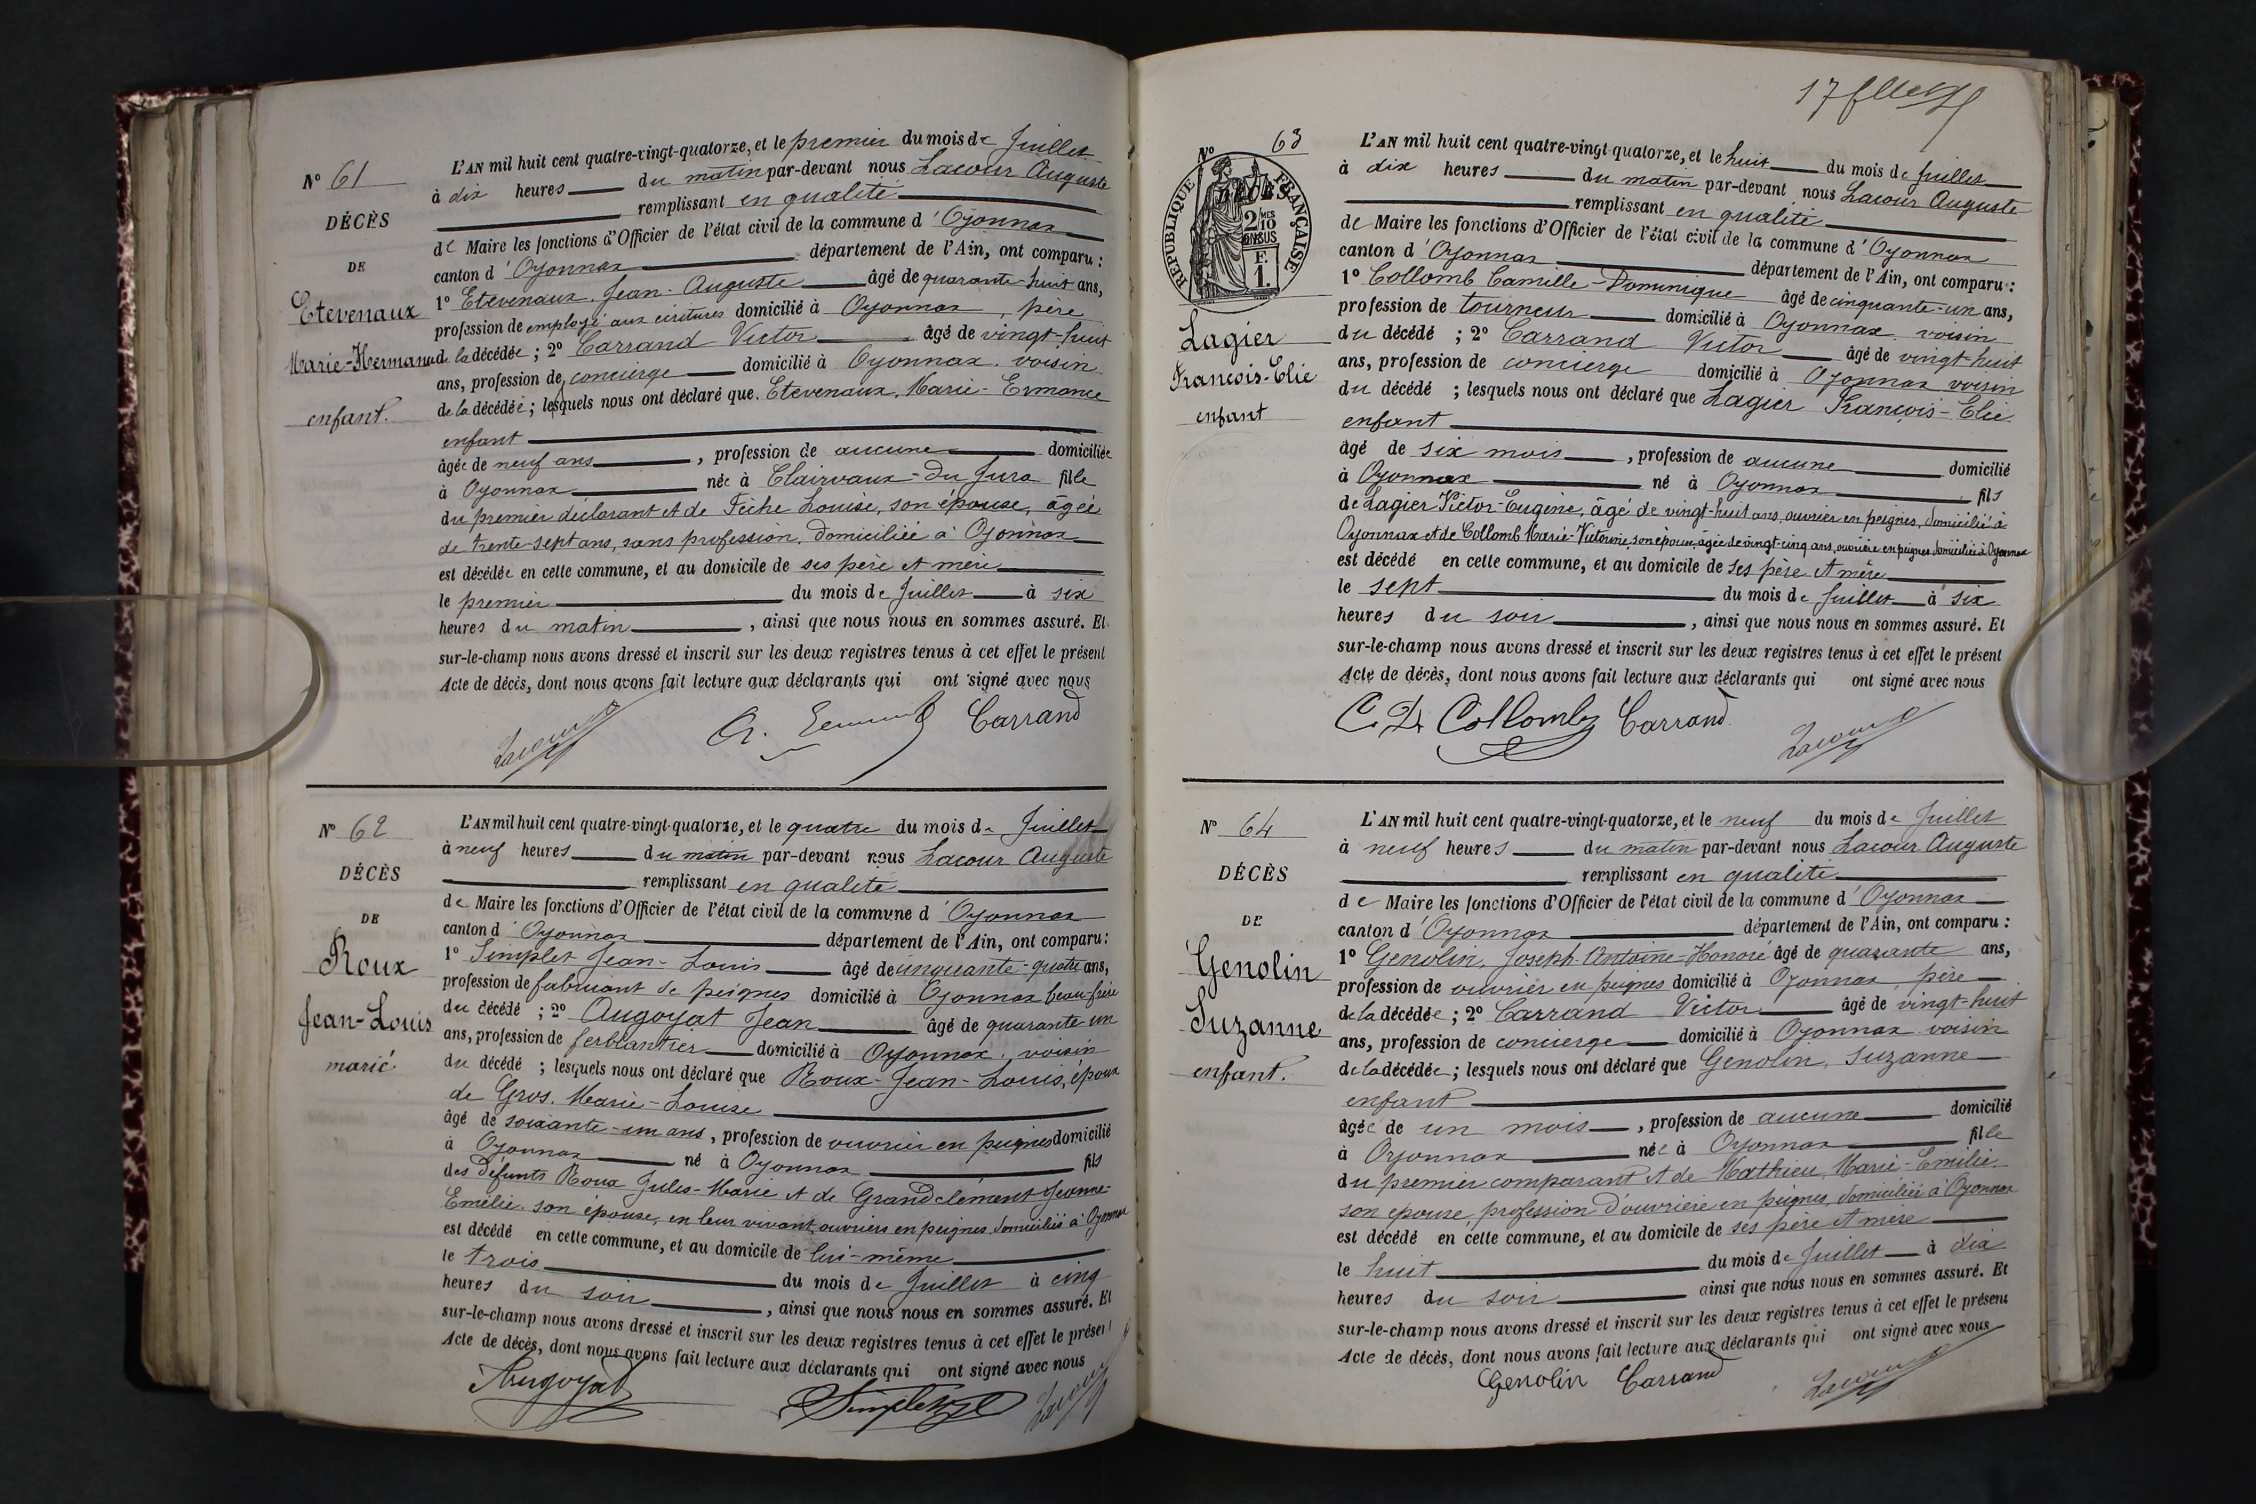 N° 61
DÉCÈS
DE
Etevenaux
Marie-Hermance
enfant.
L'AN mil huit cent quatre-vingt-quatorze, et le premier du mois de Juillet
à dix heures du matin par-devant nous Lacour Auguste
remplissant en qualité
de Maire les fonctions d'Officier de l'état civil de la commune d'Oyonnax
canton d'Oyonnax département de l'Ain, ont comparu :
1° Etevenaux, Jean-Auguste âgé de quarante-huit ans,
profession de employé aux ecritures domicilié à Oyonnax, père
de la décédée ; 2° Carrand Victor âgé de vingt-huit
ans, profession de concierge domicilié à Oyonnax voisin
de la décédée ; lesquels nous ont déclaré que Etevenaux, Marie-Ermance
enfant
âgée de neuf ans, profession de aucune domiciliée
à Oyonnax née à Clairvaux-du-Jura fille
du premier déclarant et de Fèche Louise, son épouse, âgée
de trente-sept ans, sans profession, domiciliée à Oyonnax
est décédée en cette commune, et au domicile de ses père et mère
le premier du mois de Juillet à six
heures du matin, ainsi que nous nous en sommes assuré. Et
sur-le-champ nous avons dressé et inscrit sur les deux registres tenus à cet effet le présent
Acte de décès, dont nous avons fait lecture aux déclarants qui ont signé avec nous
Lacour Carrand
N° 62
DÉCÈS
DE
Roux
Jean-Louis
marié
L'AN mil huit cent quatre-vingt-quatorze, et le quatre du mois de Juillet
à neuf heures du matin par-devant nous Lacour Auguste
remplissant en qualité
de Maire les fonctions d'Officier de l'état civil de la commune d'Oyonnax
canton d'Oyonnax département de l'Ain, ont comparu :
1° Simplet Jean-Louis âgé de cinquante-quatre ans,
profession de fabricant de peignes domicilié à Oyonnax beau-frère
du décédé ; 2° Augoyat Jean âgé de quarante-un
ans, profession de ferblantier domicilié à Oyonnax, voisin
du décédé ; lesquels nous ont déclaré que Roux-Jean-Louis, époux
de Gros, Marie-Louise
âgé de soixante-un ans, profession de ouvrier en peignes domicilié
à Oyonnax né à Oyonnax fils
des défunts Roux Jules-Marie et de Grandclément Jeanne-
Emélie son épouse, en leur vivant ouvriers en peignes domiciliés à Oyonnax
est décédé en cette commune, et au domicile de lui-même
le trois du mois de Juillet à cinq
heures du soir, ainsi que nous nous en sommes assuré. Et
sur-le-champ nous avons dressé et inscrit sur les deux registres tenus à cet effet le présent
Acte de décès, dont nous avons fait lecture aux déclarants qui ont signé avec nous
Augoyat Simplet Lacour
N° 63
RÉPUBLIQUE FRANÇAISE
DÉCÈS
2/10 MES
EN SUS
F.
1.
Lagier
Francois-Elie
enfant
L'AN mil huit cent quatre-vingt-quatorze, et le huit du mois de Juillet
à dix heures du matin par-devant nous Lacour Auguste
remplissant en qualité
de Maire les fonctions d'Officier de l'état civil de la commune d'Oyonnax
canton d'Oyonnax département de l'Ain, ont comparu :
1° Collomb Camille-Dominique âgé de cinquante-un ans,
profession de tourneur domicilié à Oyonnax voisin
du décédé ; 2° Carrand Victor âgé de vingt-huit
ans, profession de concierge domicilié à Oyonnax voisin
du décédé ; lesquels nous ont déclaré que Lagier François-Elie
enfant
âgé de six mois, profession de aucune domicilié
à Oyonnax né à Oyonnax fils
de Lagier Victor-Eugène, âgé de vingt-huit ans, ouvrier en peignes, domicilié à
Oyonnax et de Collomb Marie-Victorine, son épouse, âgée de vingt-cinq ans, ouvrière en peignes domiciliée à Oyonnax
est décédé en cette commune, et au domicile de ses père et mère
le sept du mois de Juillet à six
heures du soir, ainsi que nous nous en sommes assuré. Et
sur-le-champ nous avons dressé et inscrit sur les deux registres tenus à cet effet le présent
Acte de décès, dont nous avons fait lecture aux déclarants qui ont signé avec nous
C. D. Collomb Carrand Lacour
N° 64
DÉCÈS
DE
Genolin
Suzanne
enfant.
L'AN mil huit cent quatre-vingt-quatorze, et le neuf du mois de Juillet
à neuf heures du matin par-devant nous Lacour Auguste
remplissant en qualité
de Maire les fonctions d'Officier de l'état civil de la commune d'Oyonnax
canton d'Oyonnax département de l'Ain, ont comparu :
1° Genolin, Joseph-Antoine-Honoré âgé de quarante ans,
profession de ouvrier en peignes domicilié à Oyonnax, père
de la décédée ; 2° Carrand Victor âgé de vingt-huit
ans, profession de concierge domicilié à Oyonnax voisin
de la décédée ; lesquels nous ont déclaré que Genolin, Suzanne
enfant
âgée de un mois, profession de aucune domicilié
à Oyonnax née à Oyonnax fille
du premier comparant et de Mathieu, Marie-Emilie
son épouse, profession d'ouvrière en peignes, domiciliée à Oyonnax
est décédé en cette commune, et au domicile de ses père et mère
le huit du mois de Juillet à dix
heures du soir ainsi que nous nous en sommes assuré. Et
sur-le-champ nous avons dressé et inscrit sur les deux registres tenus à cet effet le présent
Acte de décès, dont nous avons fait lecture aux déclarants qui ont signé avec nous
Genolin Carrand Lacour